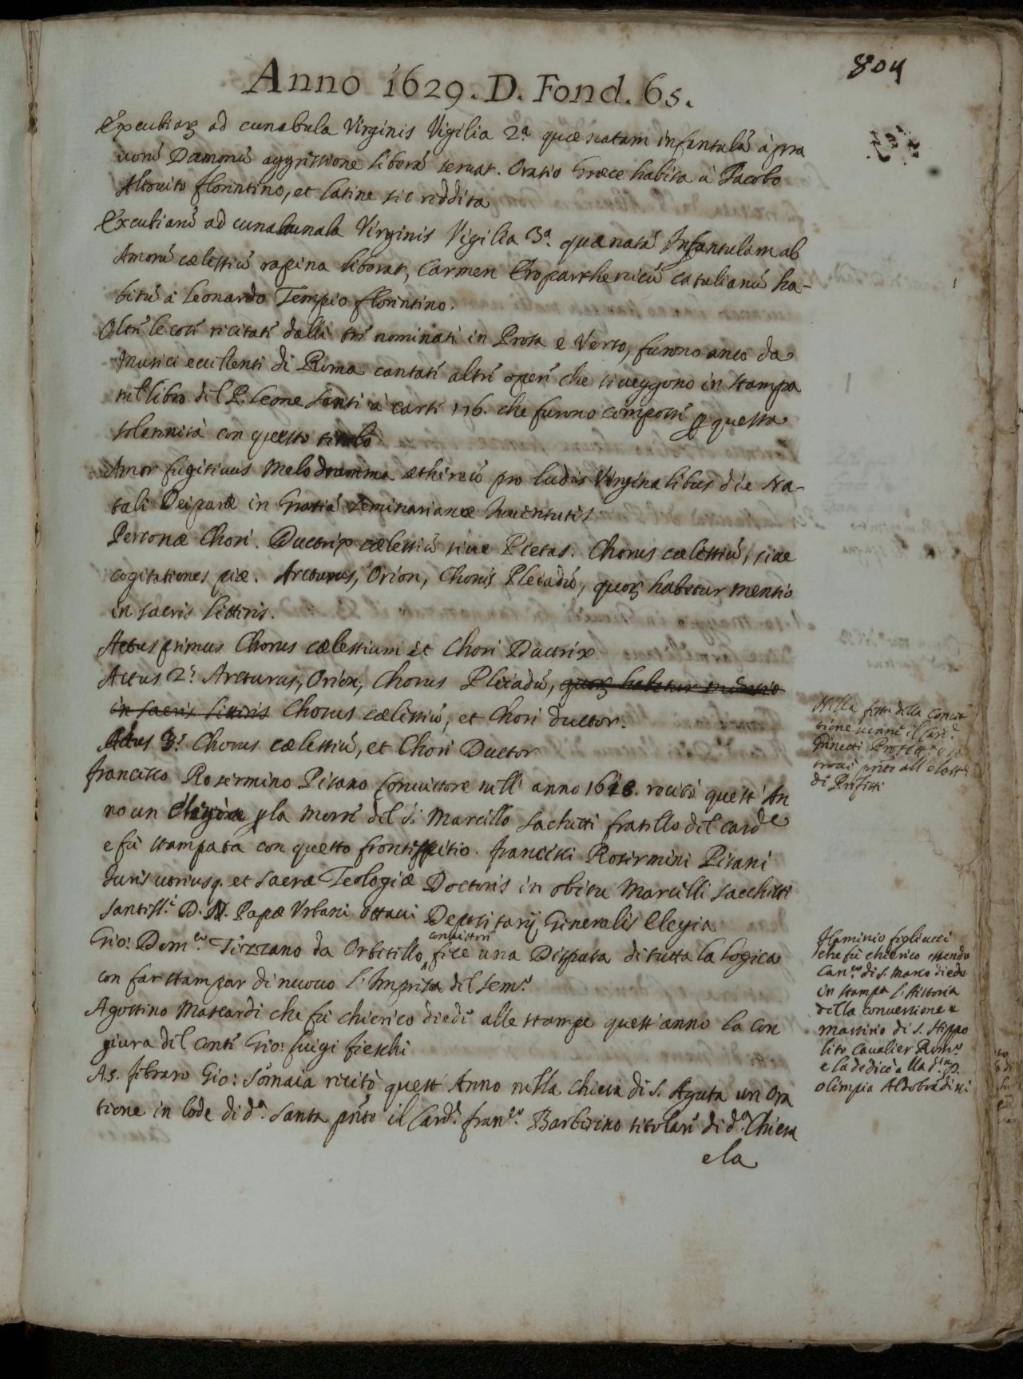 804
Anno 1629. D. Fond. 65.
Excubiaꝝ ad cunabula Virginis Vigilia 2.ª quæ natam infantulā à pra
uorū Dæmonū aggressione liberā seruat. Oratio Græce habita à Jacobo
Altouito florentino, et latine sic reddita
Excubiarū ad cunabunala Virginis Vigilia 3.ª quæ natā Infantulam ab
Amorū cælestiū rapina liberat, Carmen catulianū ha-
bitū à Leonardo Tempio florentino.
Oltre le cose recitate dalli tre nominati in Prosa e Verso, furono anco da
Musici eccellenti di Roma cantate altre opere che si ueggono in stampa
nel libro del P. Leone Santi à carte 176. che furono composte ꝑ questa
solennità con questo titolo
Amor fugitiuus Melodramma æthereū pro ludis Virginalibus die Na-
tali Deiparæ in gratiā seminarianæ Iuuentutis
Personæ Chori. Ductrix cælestiū siue Pietas. Chorus cælestiū, siue
cogitationes piæ. Arcturus, Orion, Chorus Pleiadū, quoꝝ habetur mentio
in sacris litteris.
Actus primus Chorus cælestium et Chori Ductrix
Actus 2.s Arcturus, Orion, Chorus Pleiadū, quoꝝ habetur mentio
in sacris litteris Chorus cælestiū, et Chori ductor.
Actus 3.s Chorus cælestiū, et Chori Ductor
francesco Rosermino Pisano conuittore nell' anno 1628. recitò quest' An
no un Elegia ꝑ la morte del S.r Marcello Sachetti fratello del Card.le
e fù stampata con questo frontispitio. francisci Rosermini Pisani
Iuris utriusq. et sacræ Teologiæ Doctoris in obitu Marcelli Sacchetti
Santiss.i D. N. Papæ Urbani Octaui Depositarij Generalis Elegia
Gio: Dom.co Tirzzano da Orbitello conuittore fece una Disputa di tutta la Logica
con far stampar di nuouo l' Impresa del sem.o
Agostino Mascardi che fù chierico diede alle stampe quest' anno la Con
giura del Conte Gio: luigi fieschi
As. febraro Gio: Somaia recitò quest' Anno nella chiesa di S. Agata un Ora
tione in lode di d.a Santa pñte il Card.l fran.co Barberino titolare di d.a Chiesa
e la
Nella festa della Conce
tione uenne il Card.l
Ginetti Prefetto e si
trouò pñte all' elett.e
di Prefetti
flaminio figliucci
che fù chierico essendo
Can.co di S. Marco diede
in stampa l' Historia
della conuersione e
martirio di S. Hippo
lito Caualier Rom.o
e la dedicò alla S.ra P.
olimpia Aldobrādini